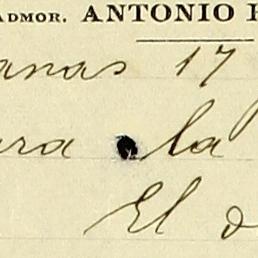 ADMOR. ANTONIO
anas 17
ara la
El d